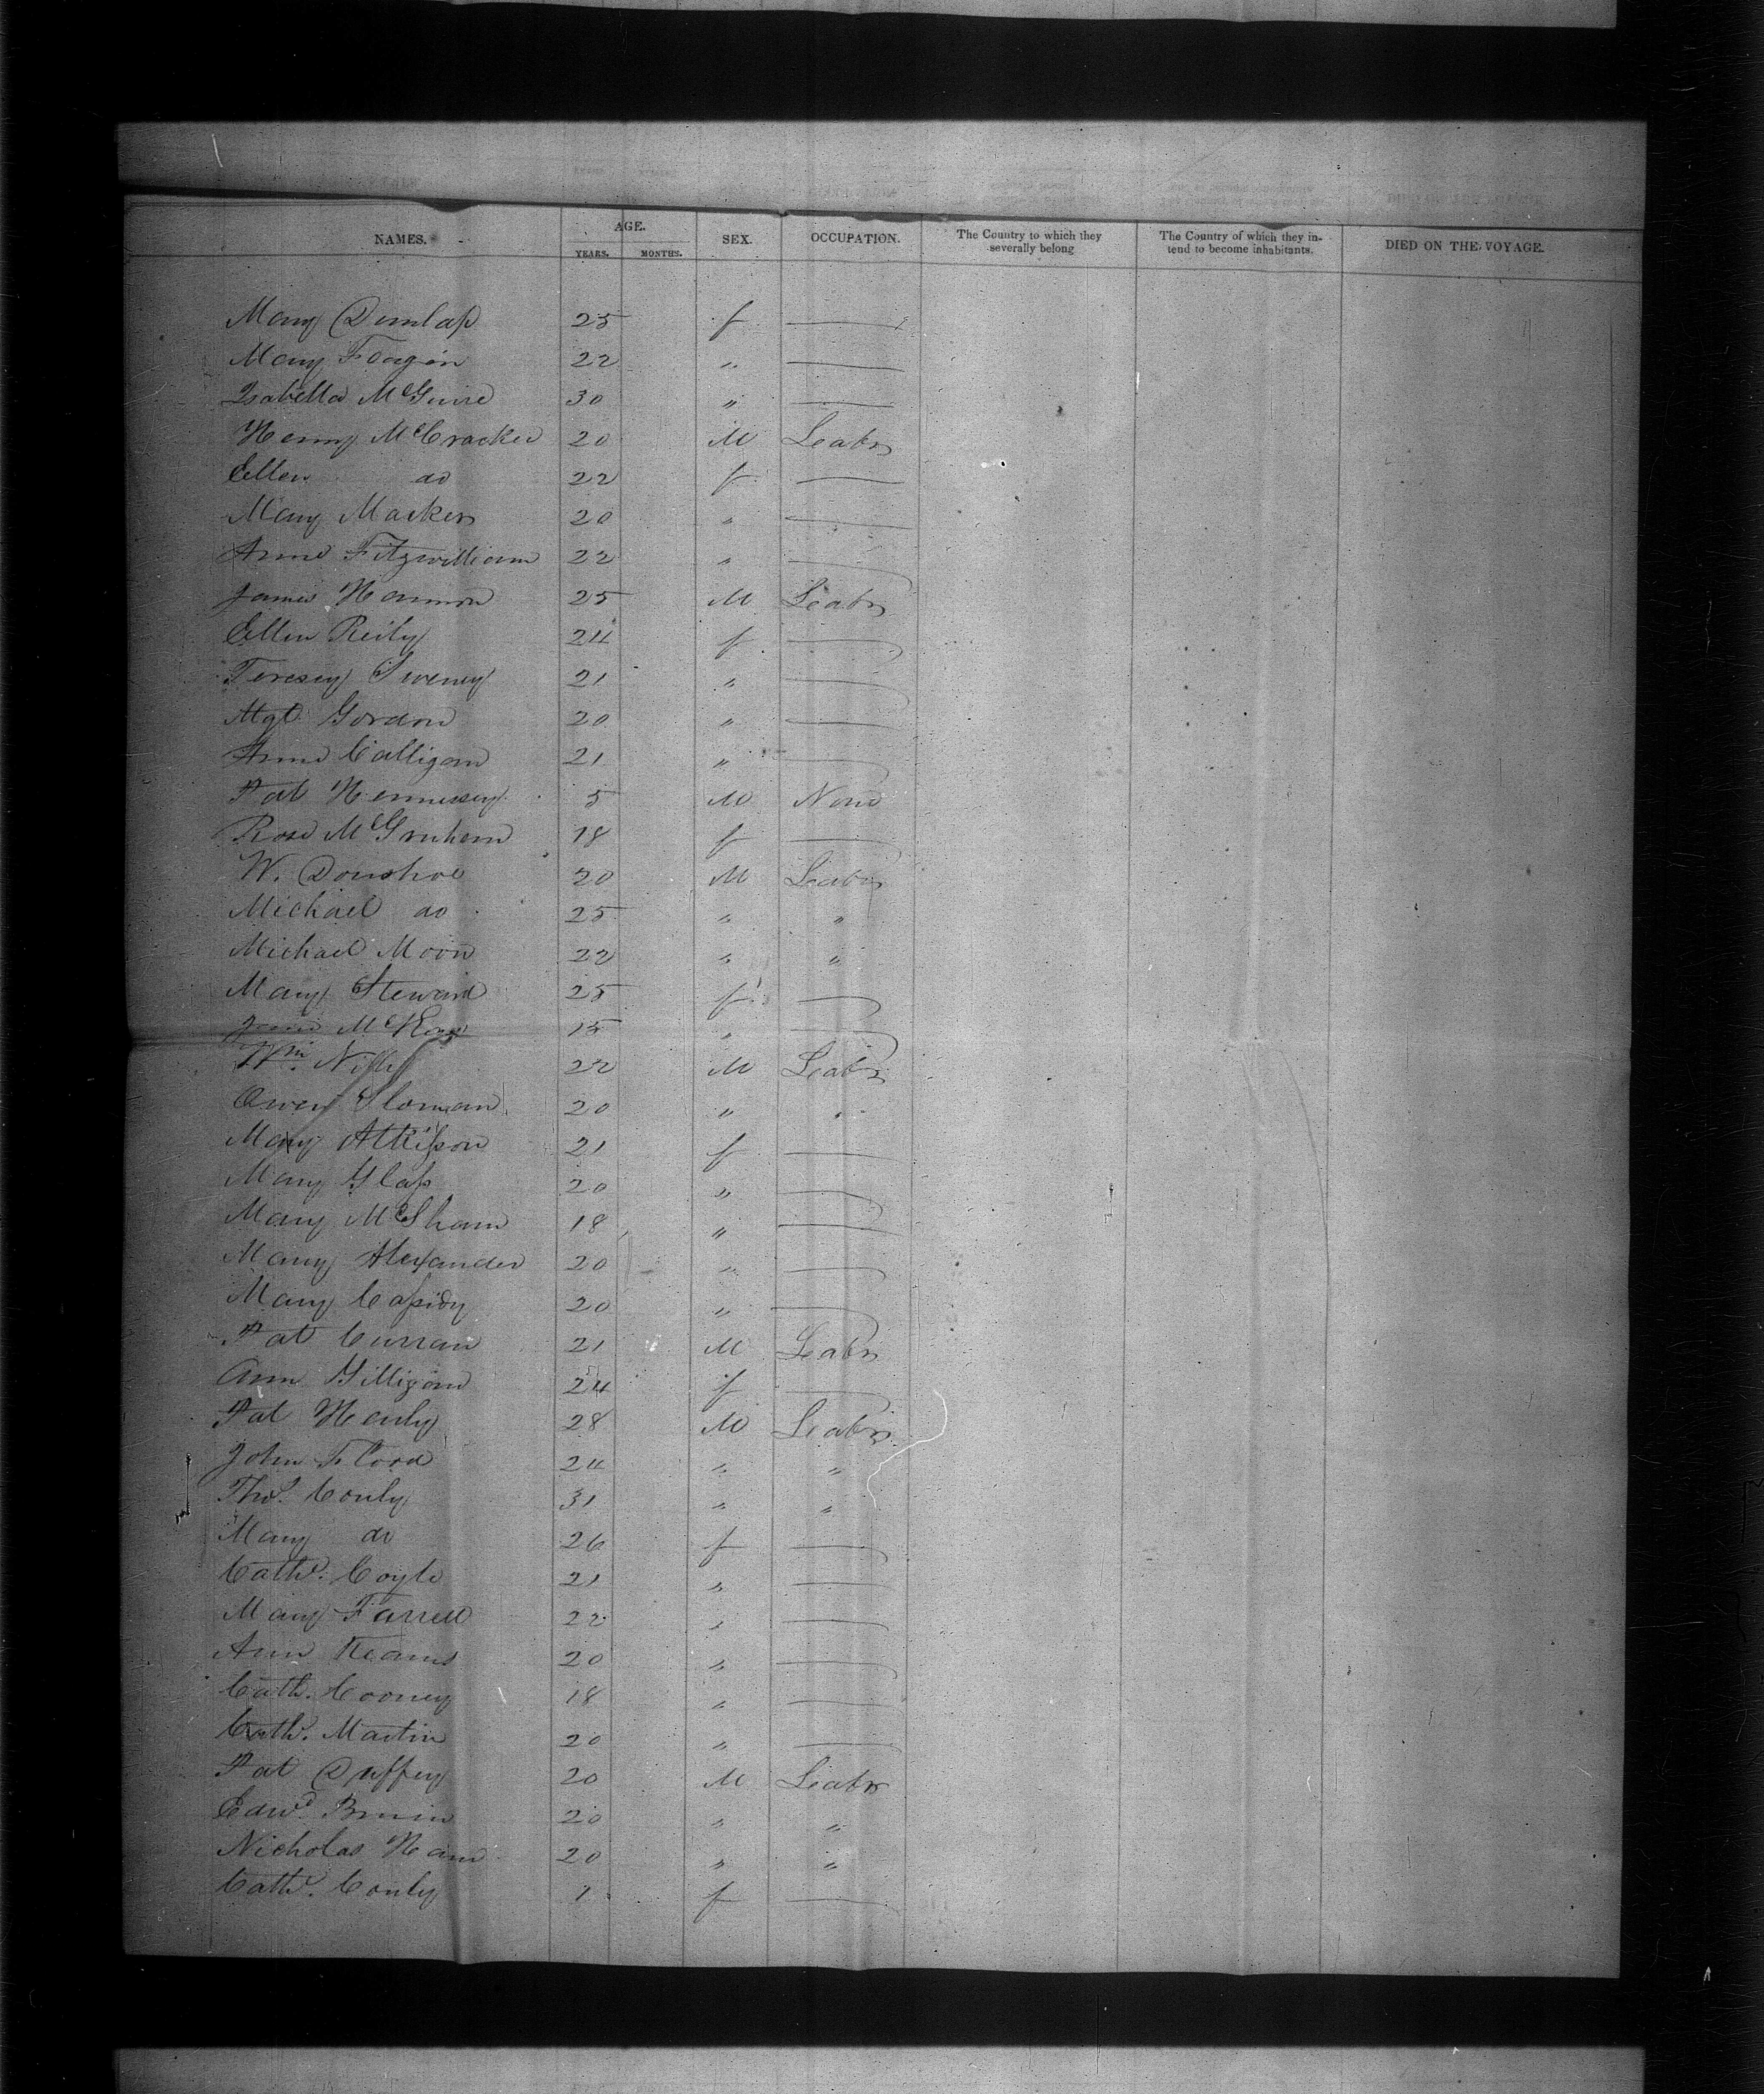 NAMES. AGE. SEX. OCCUPATION. The Country to which they severally belong The Country of which they intend to become inhabitants. DIED ON THE VOYAGE.
YEARS. MONTHS.
Mary Dunlap 25 f
Mary Feagan 22 "
Isabella McGuire 30 "
Henry McCracken 20 M Leabr
Ellen do 22 f
Mary Macken 20 "
Anne Fitzwilliam 22 "
James Hannon 25 M Leabr
Ellen Reily 24 f
Teresey Sweney 21 "
Mgt Gordon 20 "
Anne Calligan 21 "
Pat Hennesey 5 M None
Rose 18 f
W. Donohoe 20 M Leabr
Michael do 25 " "
Michael Moon 22 " "
Mary Steward 25 f
Jane 15 "
Wm 22 M Leabr
Owen Sloman 20 " "
Mary Atkisson 21 f
Mary Glass 20 "
Mary McShane 18 "
Mary Alexander 20 "
Mary Cassidy 20 "
Pat Curran 21 M Leabr
Ann Gilligan 24 f
Pat Henly 28 M Leabr
John Flood 24 " "
Thos. Conly 31 " "
Mary do 26 f
Cath. Coyle 21 "
Mary Farrell 22 "
Ann Keams 20 "
Cath. Cooney 18 "
Cath. Martin 20 "
Pat Duffey 20 M Leabr
Edwd. Bruin 20 " "
Nicholas 20 " "
Cath. Conly 1 f